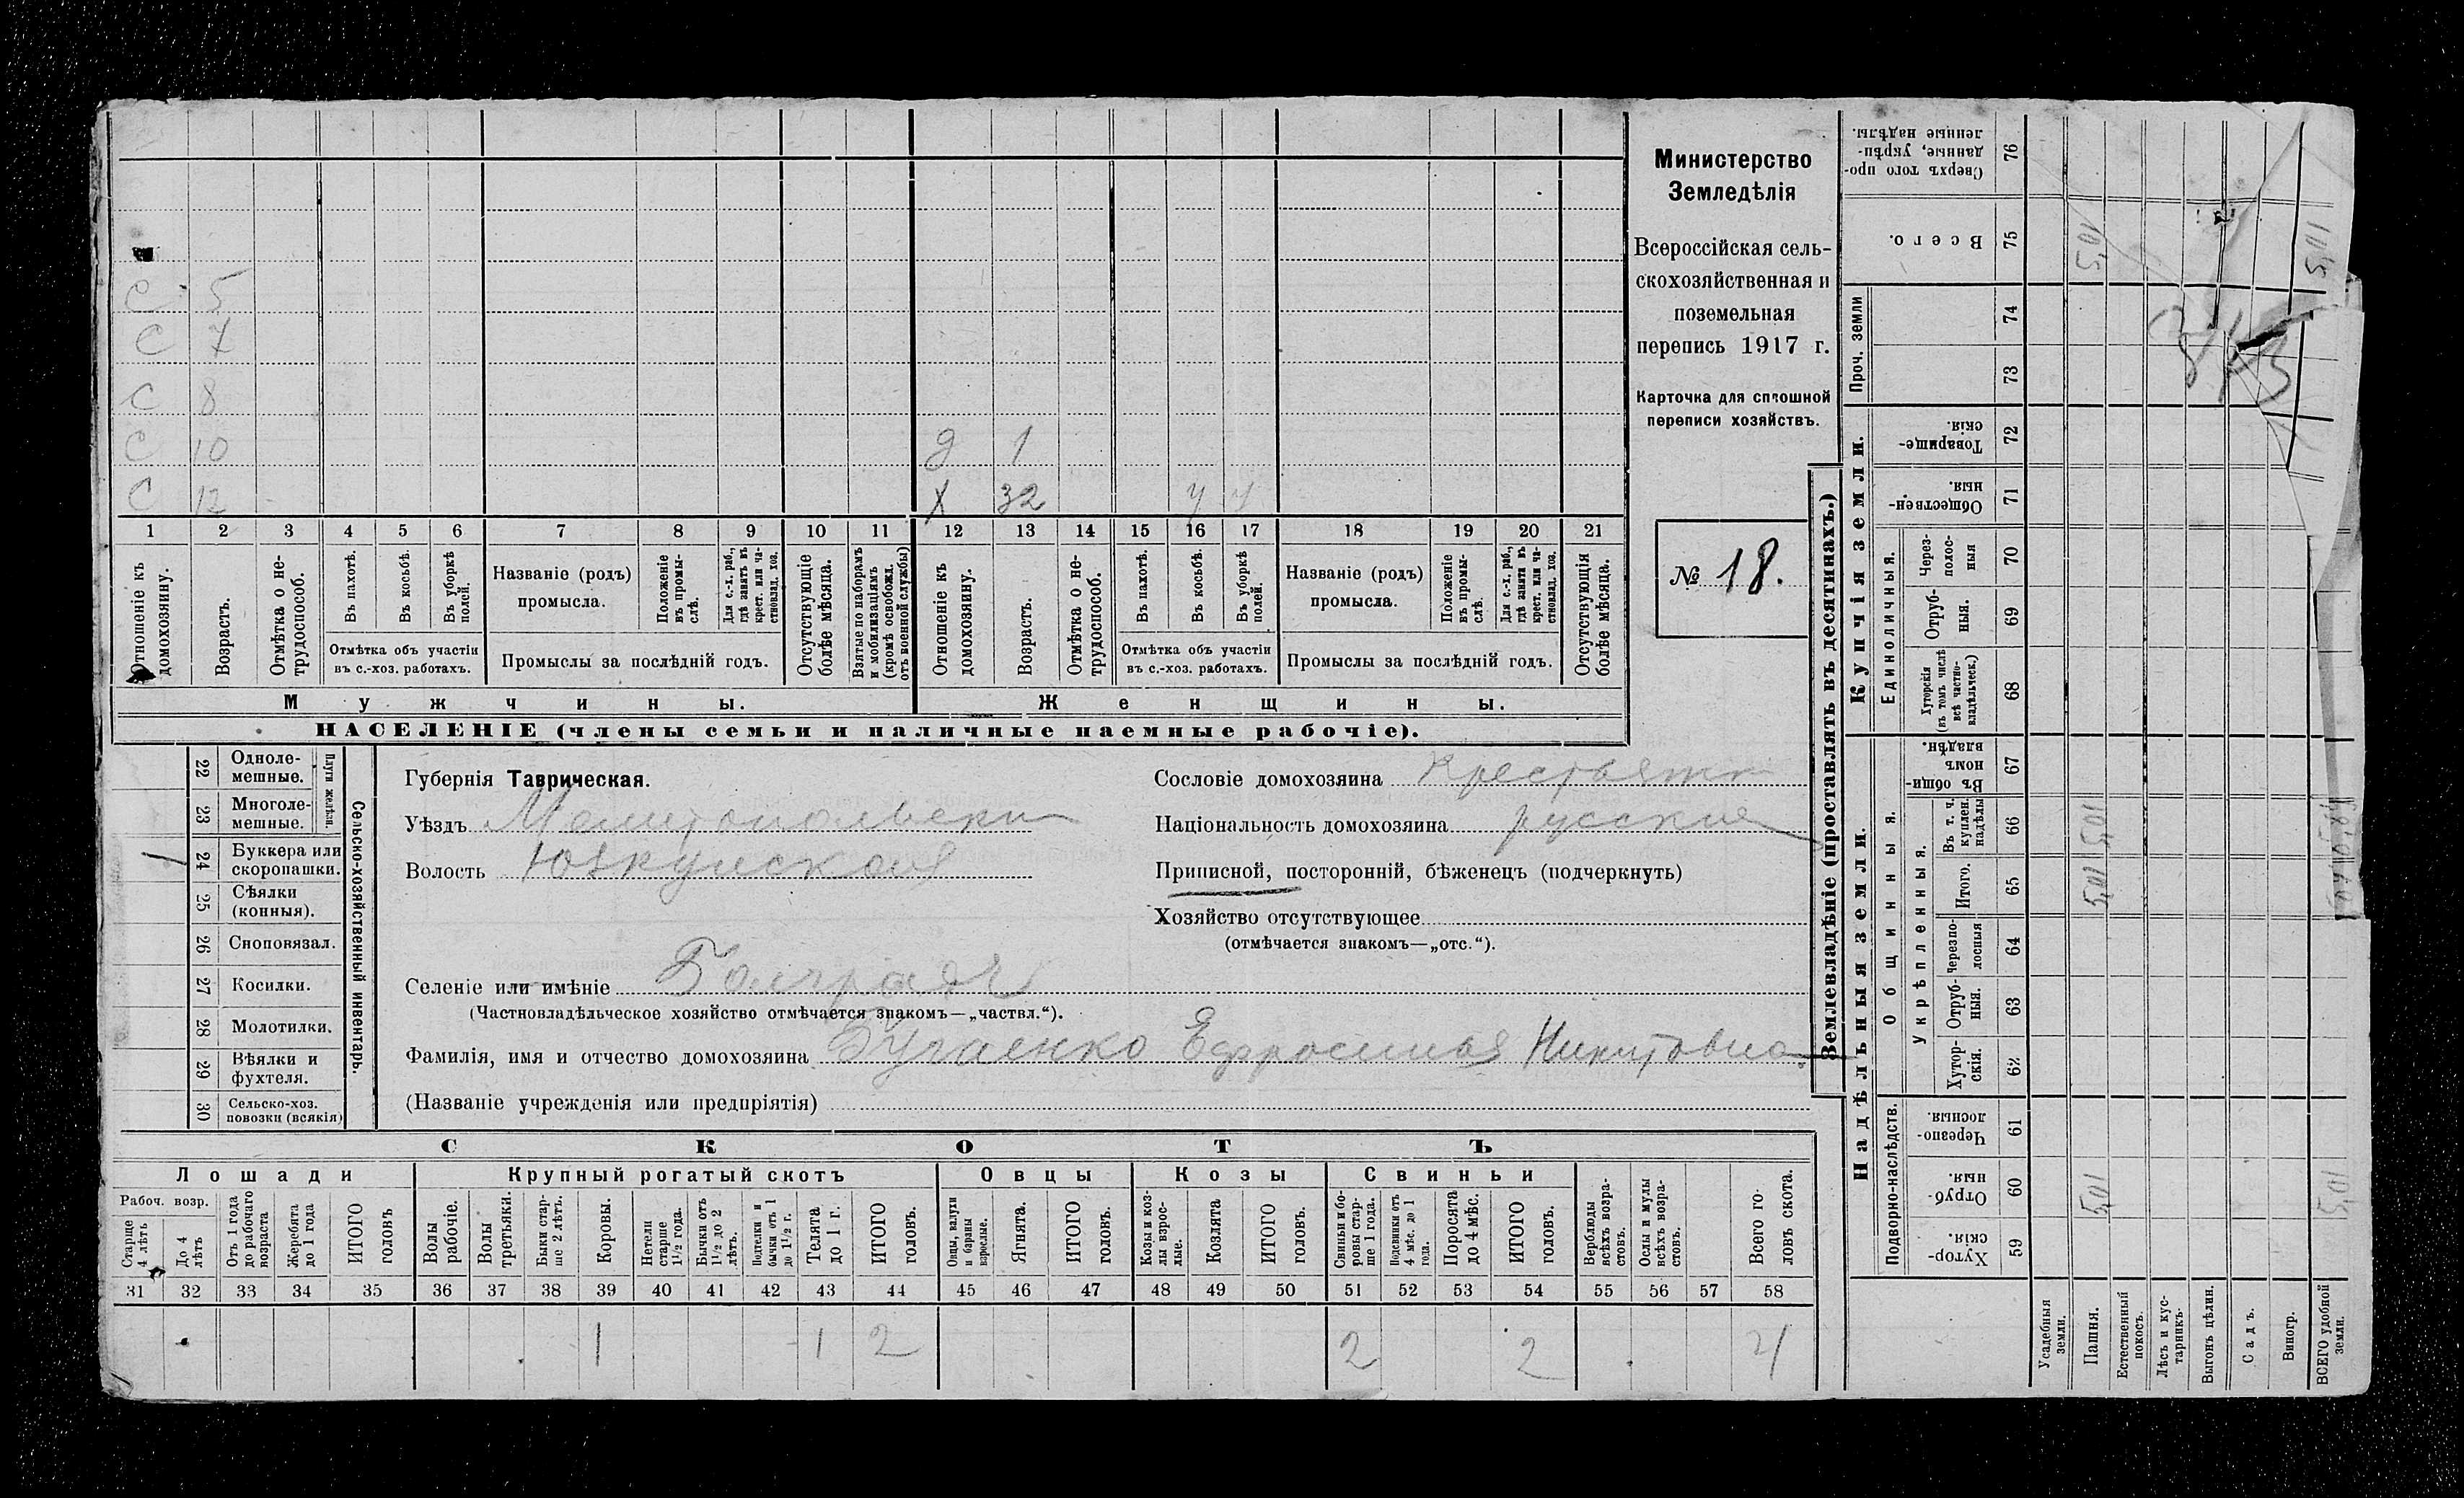 С 5
С 7
С 8
С 10 д 1
С 12 Х 32 у у
1 2 3 4 5 6 7 8 9 10 11 12 13 14 15 16 17 18 19 20 21
Отношеніе къ домохозяину.
Возрастъ.
Отмѣтка о нетрудоспособ.
Въ пахотѣ.
Въ косьбѣ.
Въ уборкѣ полей.
Отмѣтка объ участіи въ с.-хоз. работахъ.
Названіе (родъ) промысла.
Положеніе въ промыслѣ.
Для с.-х. раб., гдѣ занятъ въ крест. или частновлад. хоз.
Промыслы за послѣдній годъ.
Отсутствующіе болѣе мѣсяца.
Взятые по наборамъ и мобилизаціямъ (кромѣ освобожд. отъ военной службы)
Отношеніе къ домохозяину.
Возрастъ.
Отмѣтка о нетрудоспособ.
Въ пахотѣ.
Въ косьбѣ.
Въ уборкѣ полей.
Отмѣтка объ участіи въ с.-хоз. работахъ.
Названіе (родъ) промысла.
Положеніе въ промыслѣ.
Для с.-х. раб., гдѣ заняти въ крест. или частновлад. хоз.
Промыслы за послѣдній годъ.
Отсутствующія болѣе мѣсяца.
Мужчины. Женщины.
НАСЕЛЕНІЕ (члены семьи и наличные наемные рабочіе).
Министерство
Земледѣлія
Всероссійская сель-
скохозяйственная и
поземельная
перепись 1917 г.
Карточка для сплошной
переписи хозяйствъ.
№ 18.
Сельско-хозяйственный инвентарь.
Плуги желѣзн.
22 Одноле-
мешные.
23 Многоле-
мешные.
24 Буккера или
скоропашки.
25 Сѣялки
(конныя).
26 Сноповязал.
27 Косилки.
28 Молотилки.
29 Вѣялки и
фухтеля.
30 Сельско-хоз.
повозки (всякія)
Губернія Таврическая.
Уѣздъ Мелитопольскій
Волость Юзкуйская
Селеніе или имѣніе Болградъ
(Частновладѣльческое хозяйство отмѣчается знакомъ—„частвл.“).
Фамилія, имя и отчество домохозяина Бугаенко Ефросинья Никитовна
(Названіе учрежденія или предпріятія)
Сословіе домохозяина Крестьянк
Національность домохозяина русские
Приписной, посторонній, бѣженецъ (подчеркнуть)
Хозяйство отсутствующее
(отмѣчается знакомъ—„отс.“).
СКОТЪ
Лошади Крупный рогатый скотъ Овцы Козы Свиньи
Рабоч. возр.
Старше 4 лѣтъ
До 4 лѣтъ
Отъ 1 года до рабочаго возраста
Жеребята до 1 года
ИТОГО головъ
Волы рабочіе.
Волы третьяки.
Быки старше 2 лѣтъ.
Коровы.
Нетели старше 1½ года.
Бычки отъ 1½ до 2 лѣтъ.
Подтелки и бычки отъ 1 до 1½ г.
Телята до 1 г.
ИТОГО головъ.
Овцы, валухи и бараны взрослые.
Ягнята.
ИТОГО головъ.
Козы и козлы взрослые.
Козлята
ИТОГО головъ.
Свиньи и боровы старше 1 года.
Подсвинки отъ 4 мѣс. до 1 года.
Поросята до 4 мѣс.
ИТОГО головъ.
Верблюды всѣхъ возрастовъ.
Ослы и мулы всѣхъ возрастовъ.
Всего головъ скота.
31 32 33 34 35 36 37 38 39 40 41 42 43 44 45 46 47 48 49 50 51 52 53 54 55 56 57 58
1 1 2 2 2 4
Землевладѣніе (проставлять въ десятинахъ.)
Купчія земли.
Надѣльныя земли.
Сверхъ того проданные, укрѣпленные надѣлы. 76
Всего. 75 5,01 5,01
Проч. земли 74
73
Товарищескія. 72
Общественныя. 71
Единоличныя.
Черезполосныя 70
Отрубныя. 69
Хуторскія (въ томъ числѣ всѣ частновладѣльческ.) 68
Общинныя.
Въ общинномъ владѣн. 67
Укрѣпленныя.
Въ т. ч. куплен. надѣлы 66 5,01
Итого. 65 5,01
Черезполосныя 64
Отрубныя. 63
Хуторскія. 62
Подворно-наслѣдств.
Черезполосныя. 61
Отрубныя. 60 5,01 5,01
Хуторскія. 59
Усадебныя земли.
Пашня.
Естественный покосъ.
Лѣсъ и кустарникъ.
Выгонъ цѣлин.
Садъ.
Виногр.
ВСЕГО удобной земли.